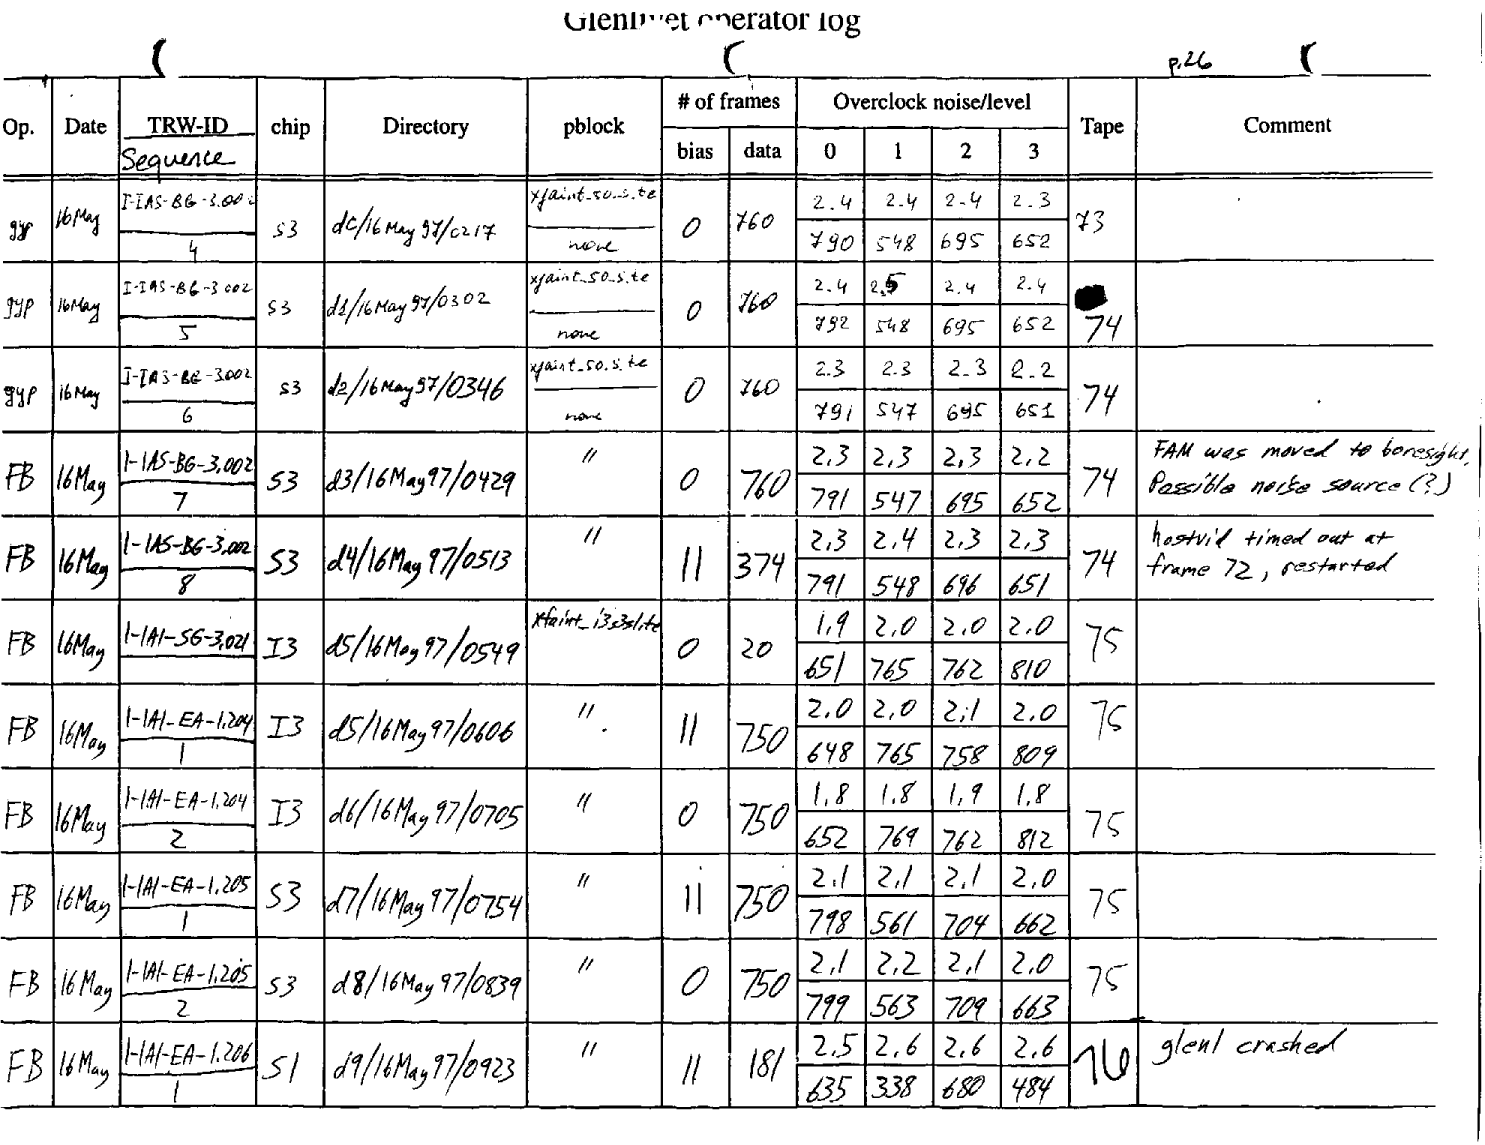 Glenlivet operator log
p.26
# of frames Overclock noise/level
Op. Date TRW-ID chip Directory pblock Tape Comment
Sequence bias data 0 1 2 3
I-IAS-BG-3.002 xfaint_50.s.te 2.4 2.4 2.4 2.3
gyp 16May S3 d0/16May97/0217 0 760 73
4 none 790 548 695 652
I-IAS-BG-3.002 xfaint_50.s.te 2.4 2.5 2.4 2.4
gyp 16May S3 d1/16May97/0302 0 760
5 none 792 548 695 652 74
I-IAS-BG-3.002 xfaint_50.s.te 2.3 2.3 2.3 2.2
gyp 16May S3 d2/16May97/0346 0 760 74
6 none 791 547 695 651
1-IAS-BG-3.002 " 2.3 2.3 2.3 2.2 FAM was moved to boresight.
FB 16May S3 d3/16May97/0429 0 760 74 Possible noise source (?)
7 791 547 695 652
1-IAS-BG-3.002 " 2.3 2.4 2.3 2.3 hostvid timed out at
FB 16May S3 d4/16May97/0513 11 374 74 frame 72, restarted
8 791 548 696 651
xfaint_i3.3slite 1.9 2.0 2.0 2.0
FB 16May 1-IAI-SG-3.021 I3 d5/16May97/0549 0 20 75
651 765 762 810
1-IAI-EA-1.204 " 2.0 2.0 2.1 2.0
FB 16May I3 d5/16May97/0606 11 750 75
1 648 765 758 809
1-IAI-EA-1.204 " 1.8 1.8 1.9 1.8
FB 16May I3 d6/16May97/0705 0 750 75
2 652 769 762 812
1-IAI-EA-1.205 " 2.1 2.1 2.1 2.0
FB 16May S3 d7/16May97/0754 11 750 75
1 798 561 704 662
1-IAI-EA-1.205 " 2.1 2.2 2.1 2.0
FB 16May S3 d8/16May97/0839 0 750 75
2 799 563 709 663
1-IAI-EA-1.206 " 2.5 2.6 2.6 2.6 glenl crashed
FB 16May S1 d9/16May97/0923 11 181 76
1 635 338 680 484